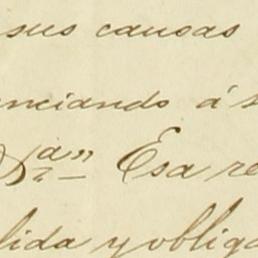 sus causas
nciando á s
Esa re
lida y obliga